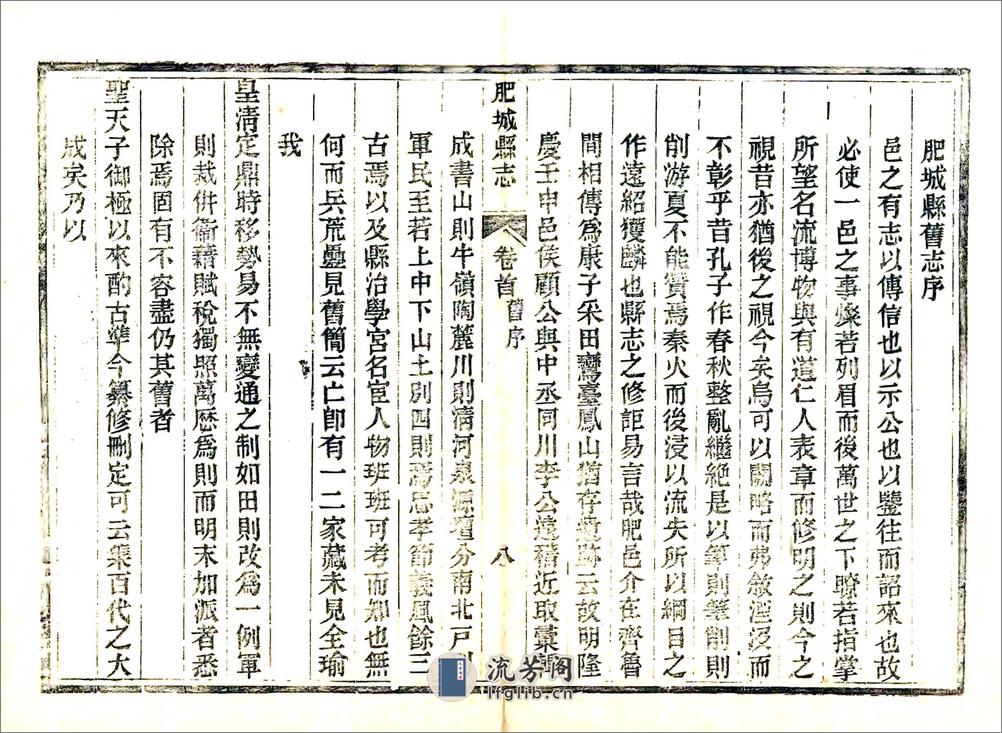 肥城縣舊志序
邑之有志以傳信也以示公也以鑒往而詔來也故
必使一邑之事燦若列眉而後萬世之下瞭若指掌
所望名流博物與有道仁人表章而修明之則今之
視昔亦猶後之視今矣烏可以闕略而弗敘湮没而
不彰乎昔孔子作春秋整亂繼絶是以筆則筆削則
削游夏不能贊焉秦火而後浸以流失所以綱目之
作遠紹獲麟也縣志之修詎易言哉肥邑介在齊魯
間相傳爲康子采田鸞臺鳳山猶存遺跡云故明隆
慶壬申邑侯顧公與中丞同川李公遠稽近取彙
肥城縣志 卷首 舊序 八
成書山則牛嶺陶麓川則清河泉源壇分南北戸
軍民至若上中下山土别四則焉忠孝節義風餘三
古焉以及縣治學宮名宦人物班班可考而知也無
何而兵荒疊見舊簡云亡卽有一二家藏未見全瑜
我
皇清定鼎時移勢易不無變通之制如田則改爲一例軍
則裁併衞籍賦稅獨照萬厯爲則而明末加派者悉
除焉固有不容盡仍其舊者
聖天子御極以來酌古準今纂修刪定可云集百代之大
成矣乃以
流芳閣
lfglib.cn